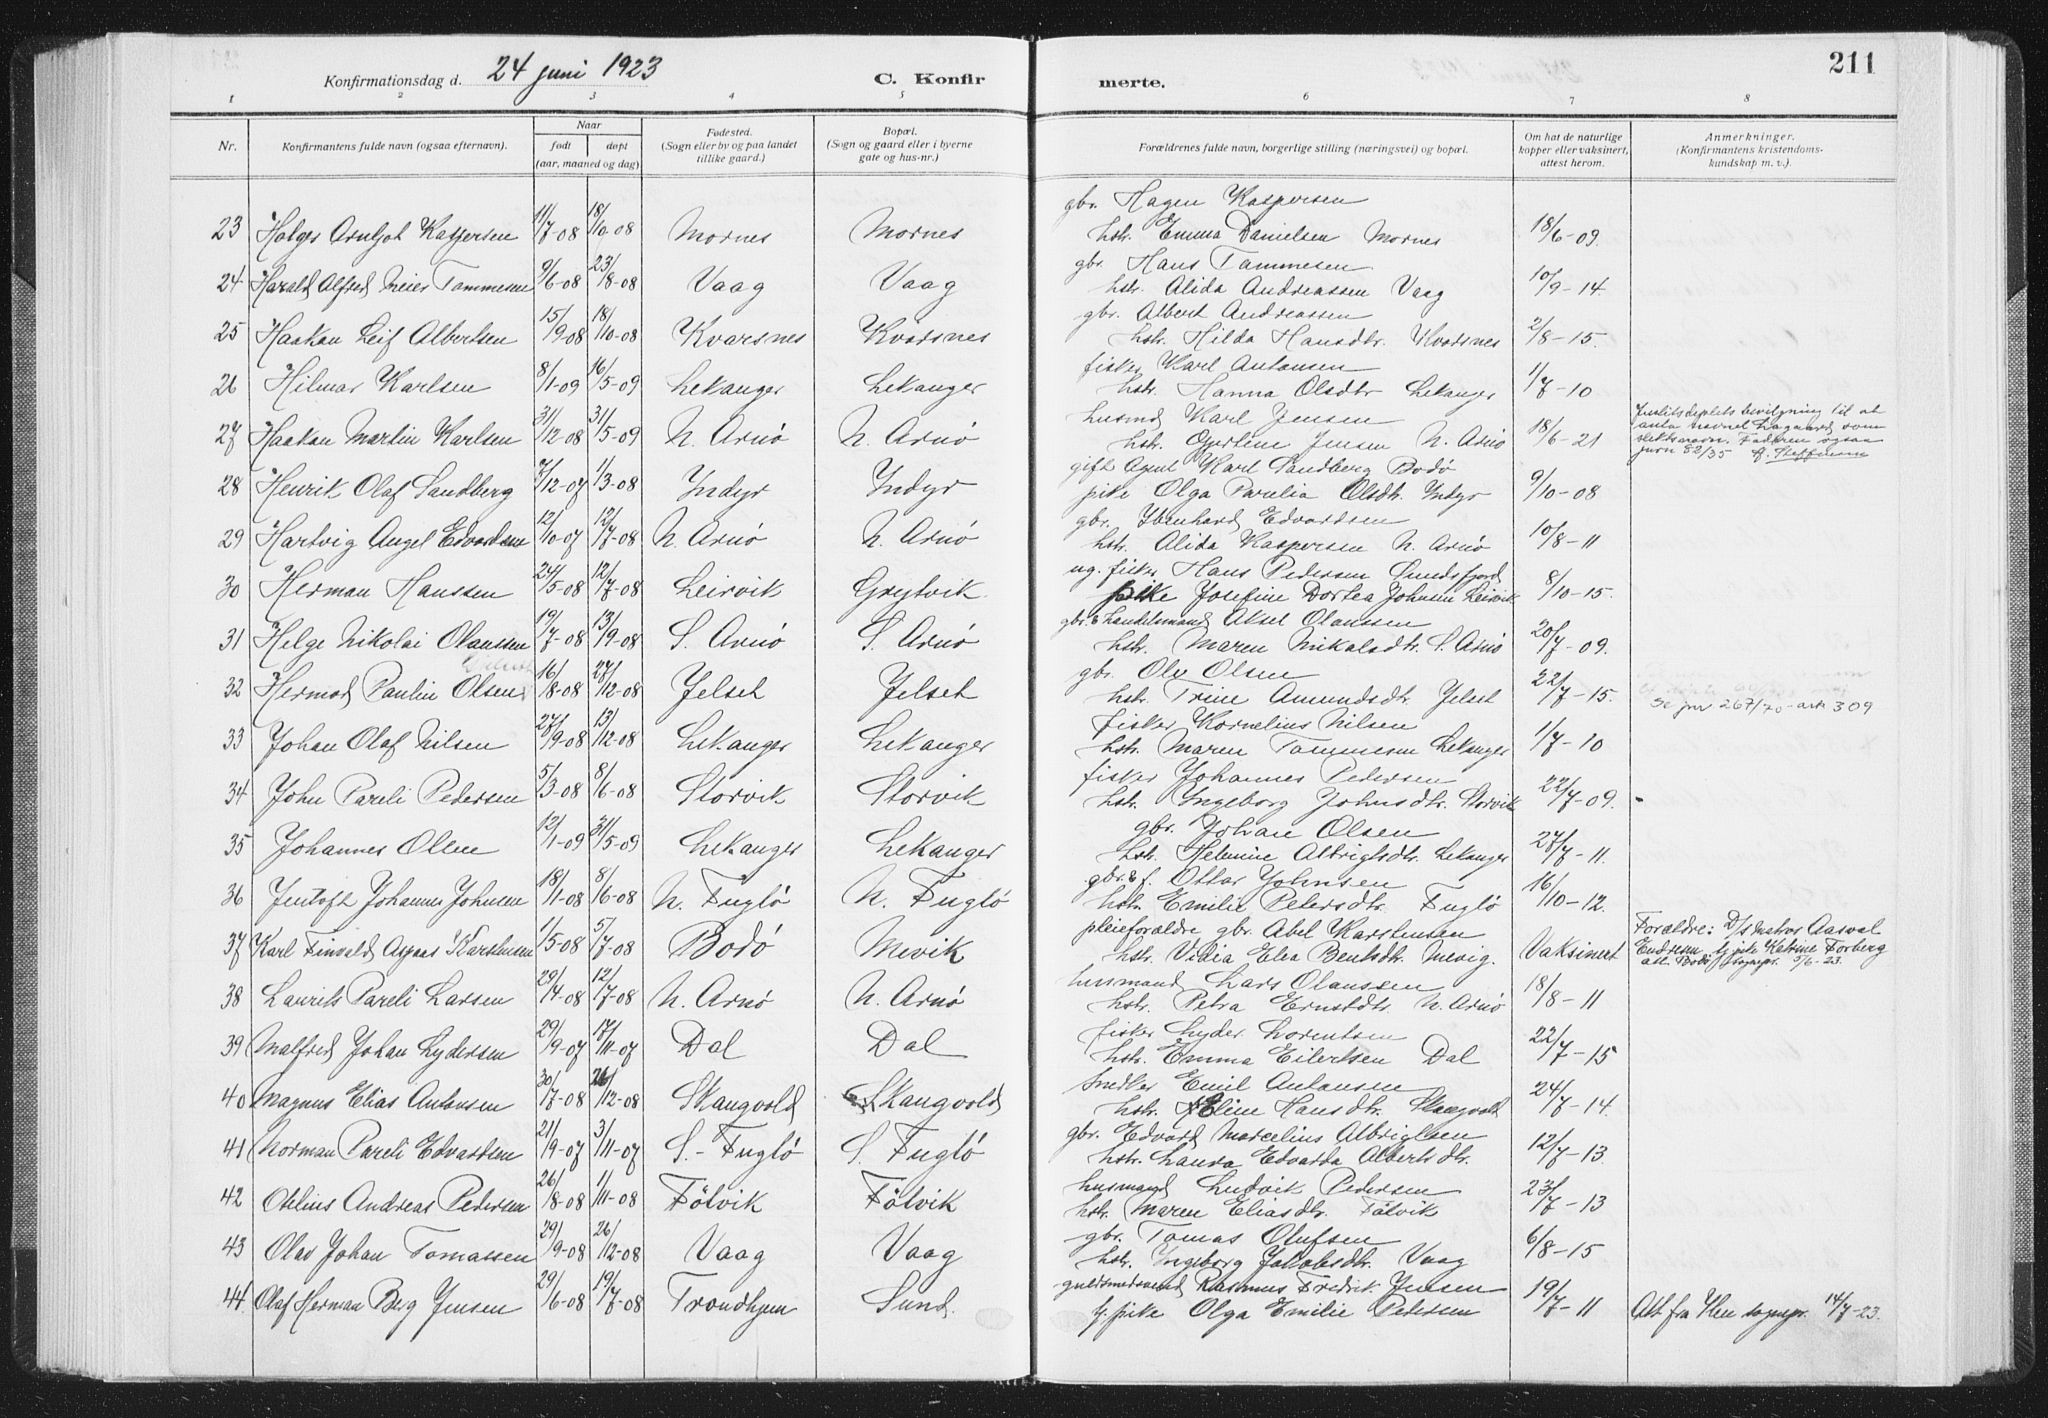 211
Konfirmationsdag d. 24 juni 1923 C. Konfirmerte.
1 2 3 4 5 6 7 8
Nr. Konfirmantens fulde navn (ogsaa efternavn). Naar født døpt (aar, maaned og dag) Fødested. (Sogn eller by og paa landet tillike gaard.) Bopæl. (Sogn og gaard eller i byerne gate og hus-nr.) Forældrenes fulde navn, borgerlige stilling (næringsvei) og bopæl. Om hat de naturlige kopper eller vaksinert, attest herom. Anmerkninger. (Konfirmantens kristendomskundskap m. v.).
gbr. Hagen Kaspersen
23 Holger Arnljot Kaspersen 11/7-08 18/10-08 Mornes Mornes hstr. Emma Danielsen Mornes 18/6-09.
gbr. Hans Tammesen
24 Harald Alfred Meier Tammesen 9/6-08 23/8-08 Vaag Vaag hstr. Alida Andreassen Vaag 10/9-14.
gbr. Albert Andreassen
25 Haakan Leif Albertsen 15/9-08 18/10-08 Kvarsnes Kvarsnes hstr. Hilda Hansdtr. Kvarsnes 2/8-15.
fisker Karl Antonsen
26 Hilmar Karlsen 8/1-09 16/5-09 Lekanger Lekanger hstr. Hanna Olsdtr Lekanger 1/7-10
husmd Karl Jensen
27 Haakan Martin Karlsen 31/12-08 31/5-09 N. Arnö N. Arnö hstr. Jensen N. Arnö 18/6-21 Justitsdeptets bevilgning til at anta navnet som slektsnavn. Faderen ogsaa jurn 82/35
gift Agent Karl Sandberg Bodö
28 Henrik Olaf Sandberg 2/12-07 1/3-08 Indyr Indyr pike Olga Parelia Olsdtr. Indyr 9/10-08
gbr. Edvardsen
29 Hartvig Angel Edvardsen 12/10-07 12/7-08 N. Arnö N. Arnö hstr. Alida Kaspersen N. Arnö 10/8-11
ug. fisker Hans Pedersen Sundsfjord
30 Herman Hanssen 24/5-08 12/7-08 Leirvik Grytvik pike Josefine Dortea Johnsen Leirvik 8/10-15.
gbr & handelsmand Aksel Olaussen
31 Helge Nikolai Olaussen 19/7-08 13/9-08 S. Arnö S. Arnö hstr. Maren Nikolaidtr. S. Arnö 20/7-09.
gbr. Ole Olsen
32 Hermod Paulin Olsen 16/8-08 27/12-08 Jelset Jelset hstr. Trine Amundsdtr Jelset 22/7-15. se jnr. 267/70 - ark 309
fisker Kornelius Nilsen
33 Johan Olaf Nilsen 27/9-08 13/12-08 Lekanger Lekanger hstr. Maren Tammesen Lekanger 1/7-10
fisker Johannes Pedersen
34 John Pareli Pedersen 5/3-08 8/6-08 Storvik Storvik hstr. Ingeborg Johnsdtr. Storvik 22/7-09.
gbr. Johan Olsen
35 Johannes Olsen 12/1-09 31/5-09 Lekanger Lekanger hstr. Helmine Albrigtsdtr. Lekanger 27/7-11.
gbr. & f. Ottar Johnsen
36 Jentoft Johannes Johnsen 18/1-08 8/6-08 N. Fuglö N. Fuglö hstr. Emilie Petersdtr. Fuglö 16/10-12.
pleieforældre gbr. Abel Karstensen
37 Karl Finvald Karstensen 1/5-08 5/7-08 Bodö Mevik hstr. Vidia Elea Bentsdtr. Mevig. Vaksinert Forældre: D/s matros Aasval Endresen Katrine Forberg att. Bodö sognepr. 5/6-23.
husmand Lars Olaussen
38 Laurits Pareli Larsen 29/4-08 12/7-08 N. Arnö N. Arnö hstr. Petra Ernstdtr. N. Arnö 18/8-11
fisker Lyder Lorentsen
39 Malfred Johan Lydersen 29/9-07 17/11-07 Dal Dal hstr. Emma Eilertsen Dal 22/7-15
Snedker Emil Antonsen
40 Magnus Elias Antonsen 30/7-08 26/12-08 Skangvold Skangvold hstr. Eline Hansdtr. Skangvold 24/7-14.
gbr. Edvard Marcelius Albrigtsen
41 Norman Pareli Edvardsen 21/9-07 3/11-07 S. - Fuglö S. Fuglö hstr. Laura Edvarda Albertsdtr. 12/7-13.
husmand Ludvik Pedersen
42 Otelius Andreas Pedersen 26/8-08 1/11-08 Fölvik Fölvik hstr. Maren Eliasdtr. Fölvik 23/7-13
gbr. Tomas Olufsen
43 Olav Johan Tomassen 29/9-08 26/12-08 Vaag Vaag hstr. Ingeborg Jakobsdtr. Vaag 6/8-15
guldsmedsvend Rasmus Fredrik Jensen
44. Olaf Herman Berg Jensen 29/6-08 19/7-08 Trondhjem Sund. pike Olga Emilie Petersen 19/7-11 Att. fra Ilen sognepr. 14/7-23.